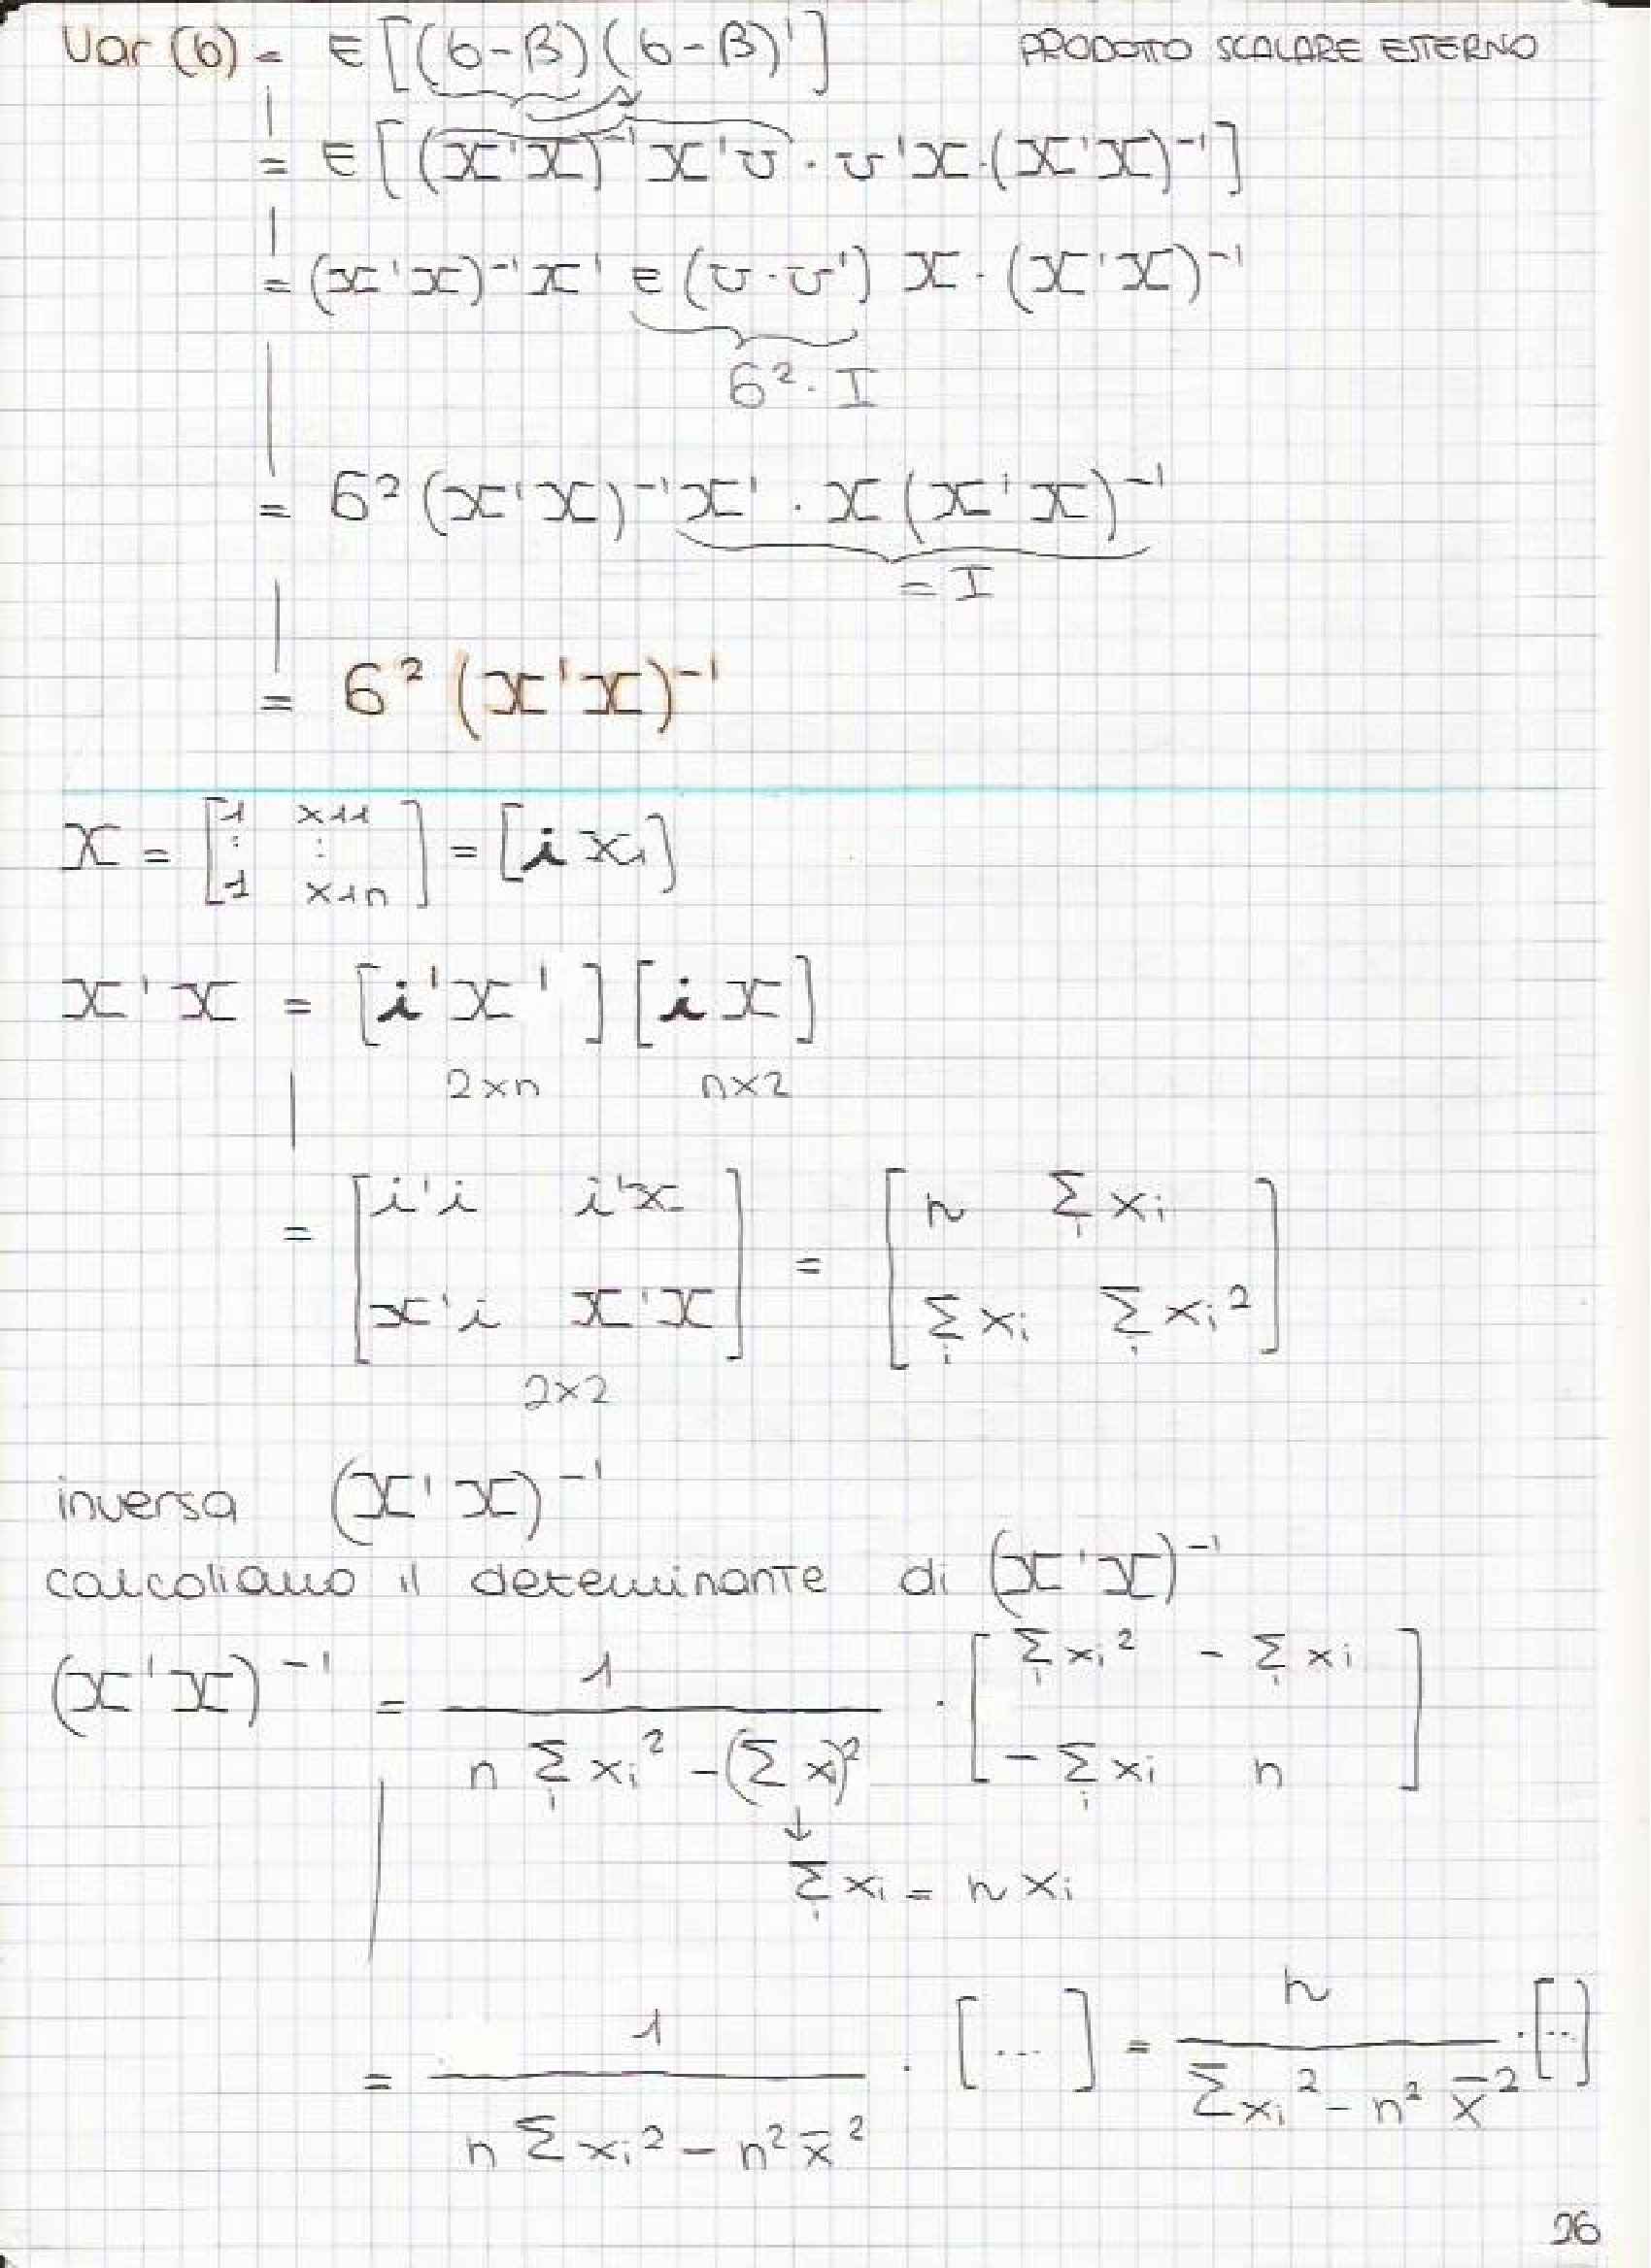 Var (b) = E [(b-β)(b-β)'] PRODOTTO SCALARE ESTERNO
= E [(X'X)⁻¹X'υ · υ'X·(X'X)⁻¹]
= (X'X)⁻¹X' E (υ·υ') X · (X'X)⁻¹
σ² · I
= σ² (X'X)⁻¹X' · X (X'X)⁻¹
= I
= σ² (X'X)⁻¹
X = [1 x11 ⋮ ⋮ 1 x1n] = [i x1]
X'X = [i'X'] [i X]
2×n n×2
= [i'i i'x X'i X'X] = [n Σi xi Σi xi Σi xi²]
2×2
inversa (X'X)⁻¹
calcoliamo il determinante di (X'X)⁻¹
(X'X)⁻¹ = 1 / n Σi xi² - (Σ xi)² · [Σi xi² - Σi xi - Σi xi n]
↓
Σi xi = n xi
= 1 / n Σ xi² - n² x̄² · [...] = n / Σ xi² - n² x̄² · [...]
26